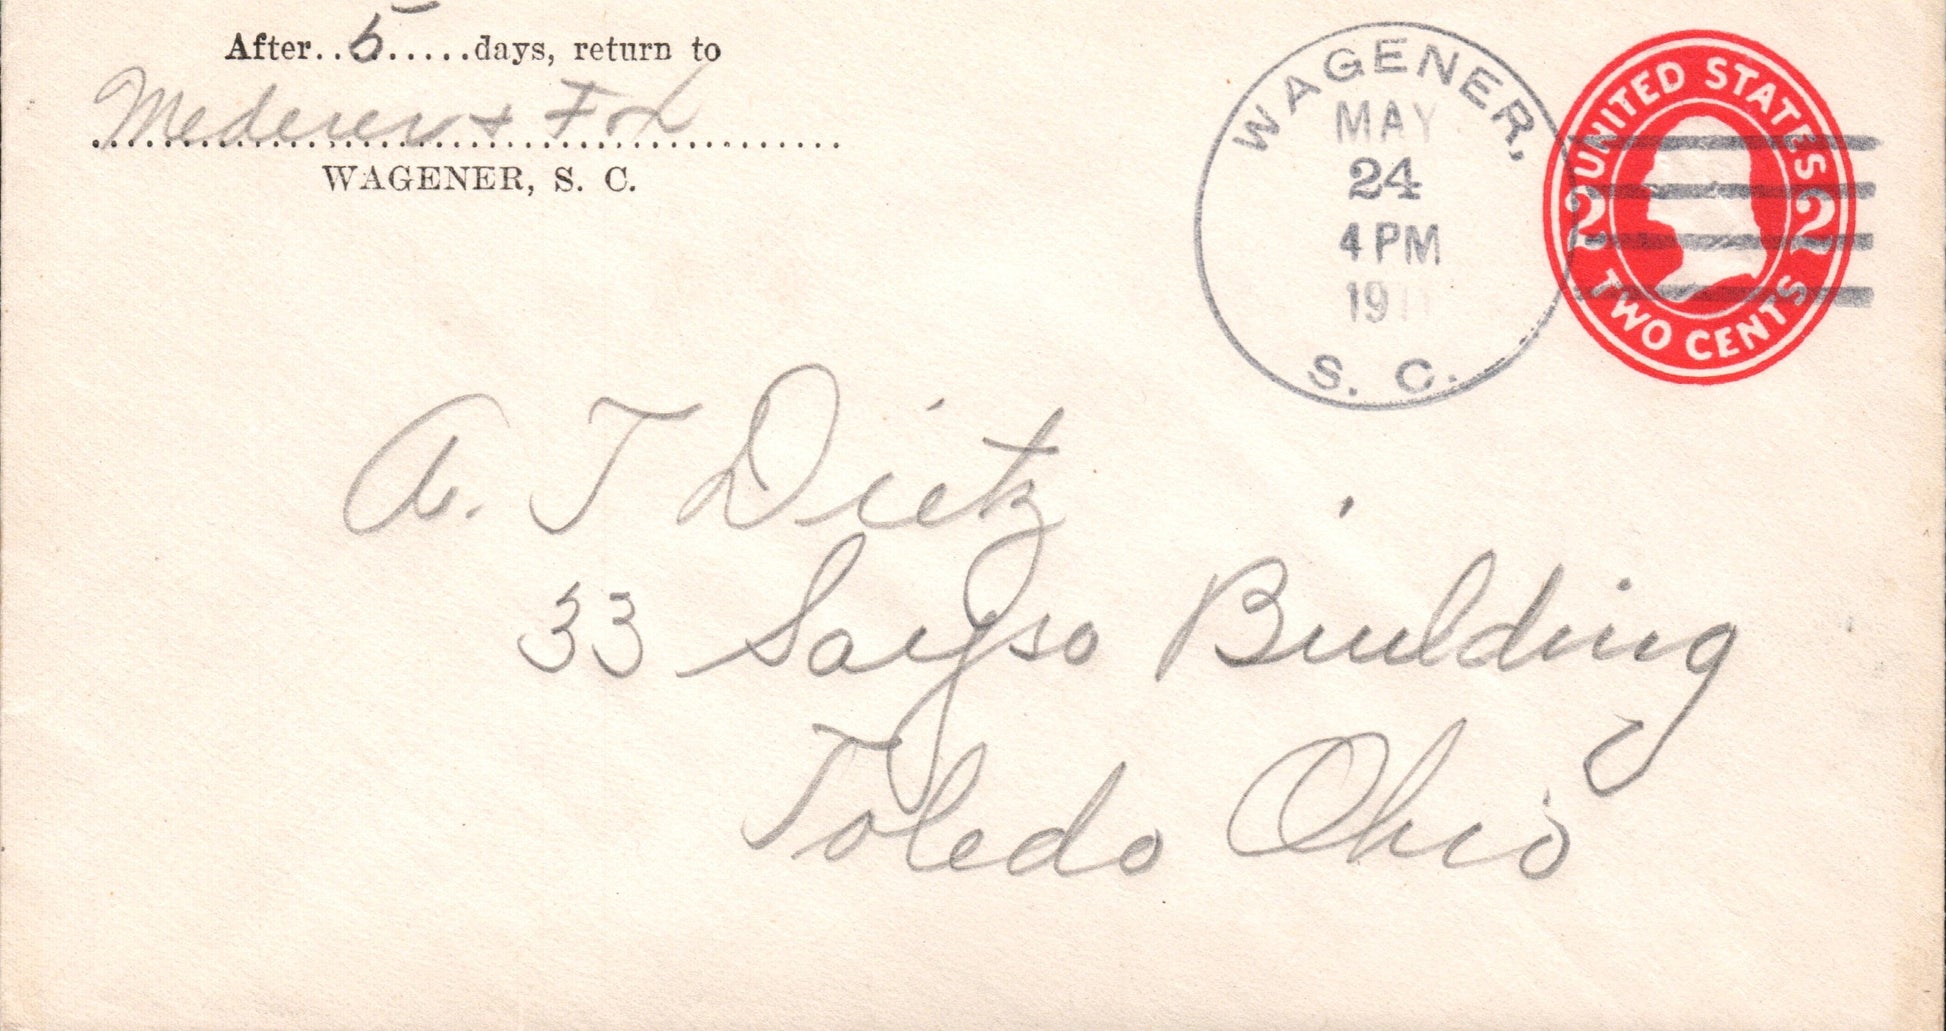 After..5.....days, return to
Mederer & Fox
WAGENER, S. C.
WAGENER,
MAY
24
4 PM
19
S. C.
UNITED STATES
2 2
TWO CENTS
A. T Dietz
33 Sayso Building
Toledo Ohio